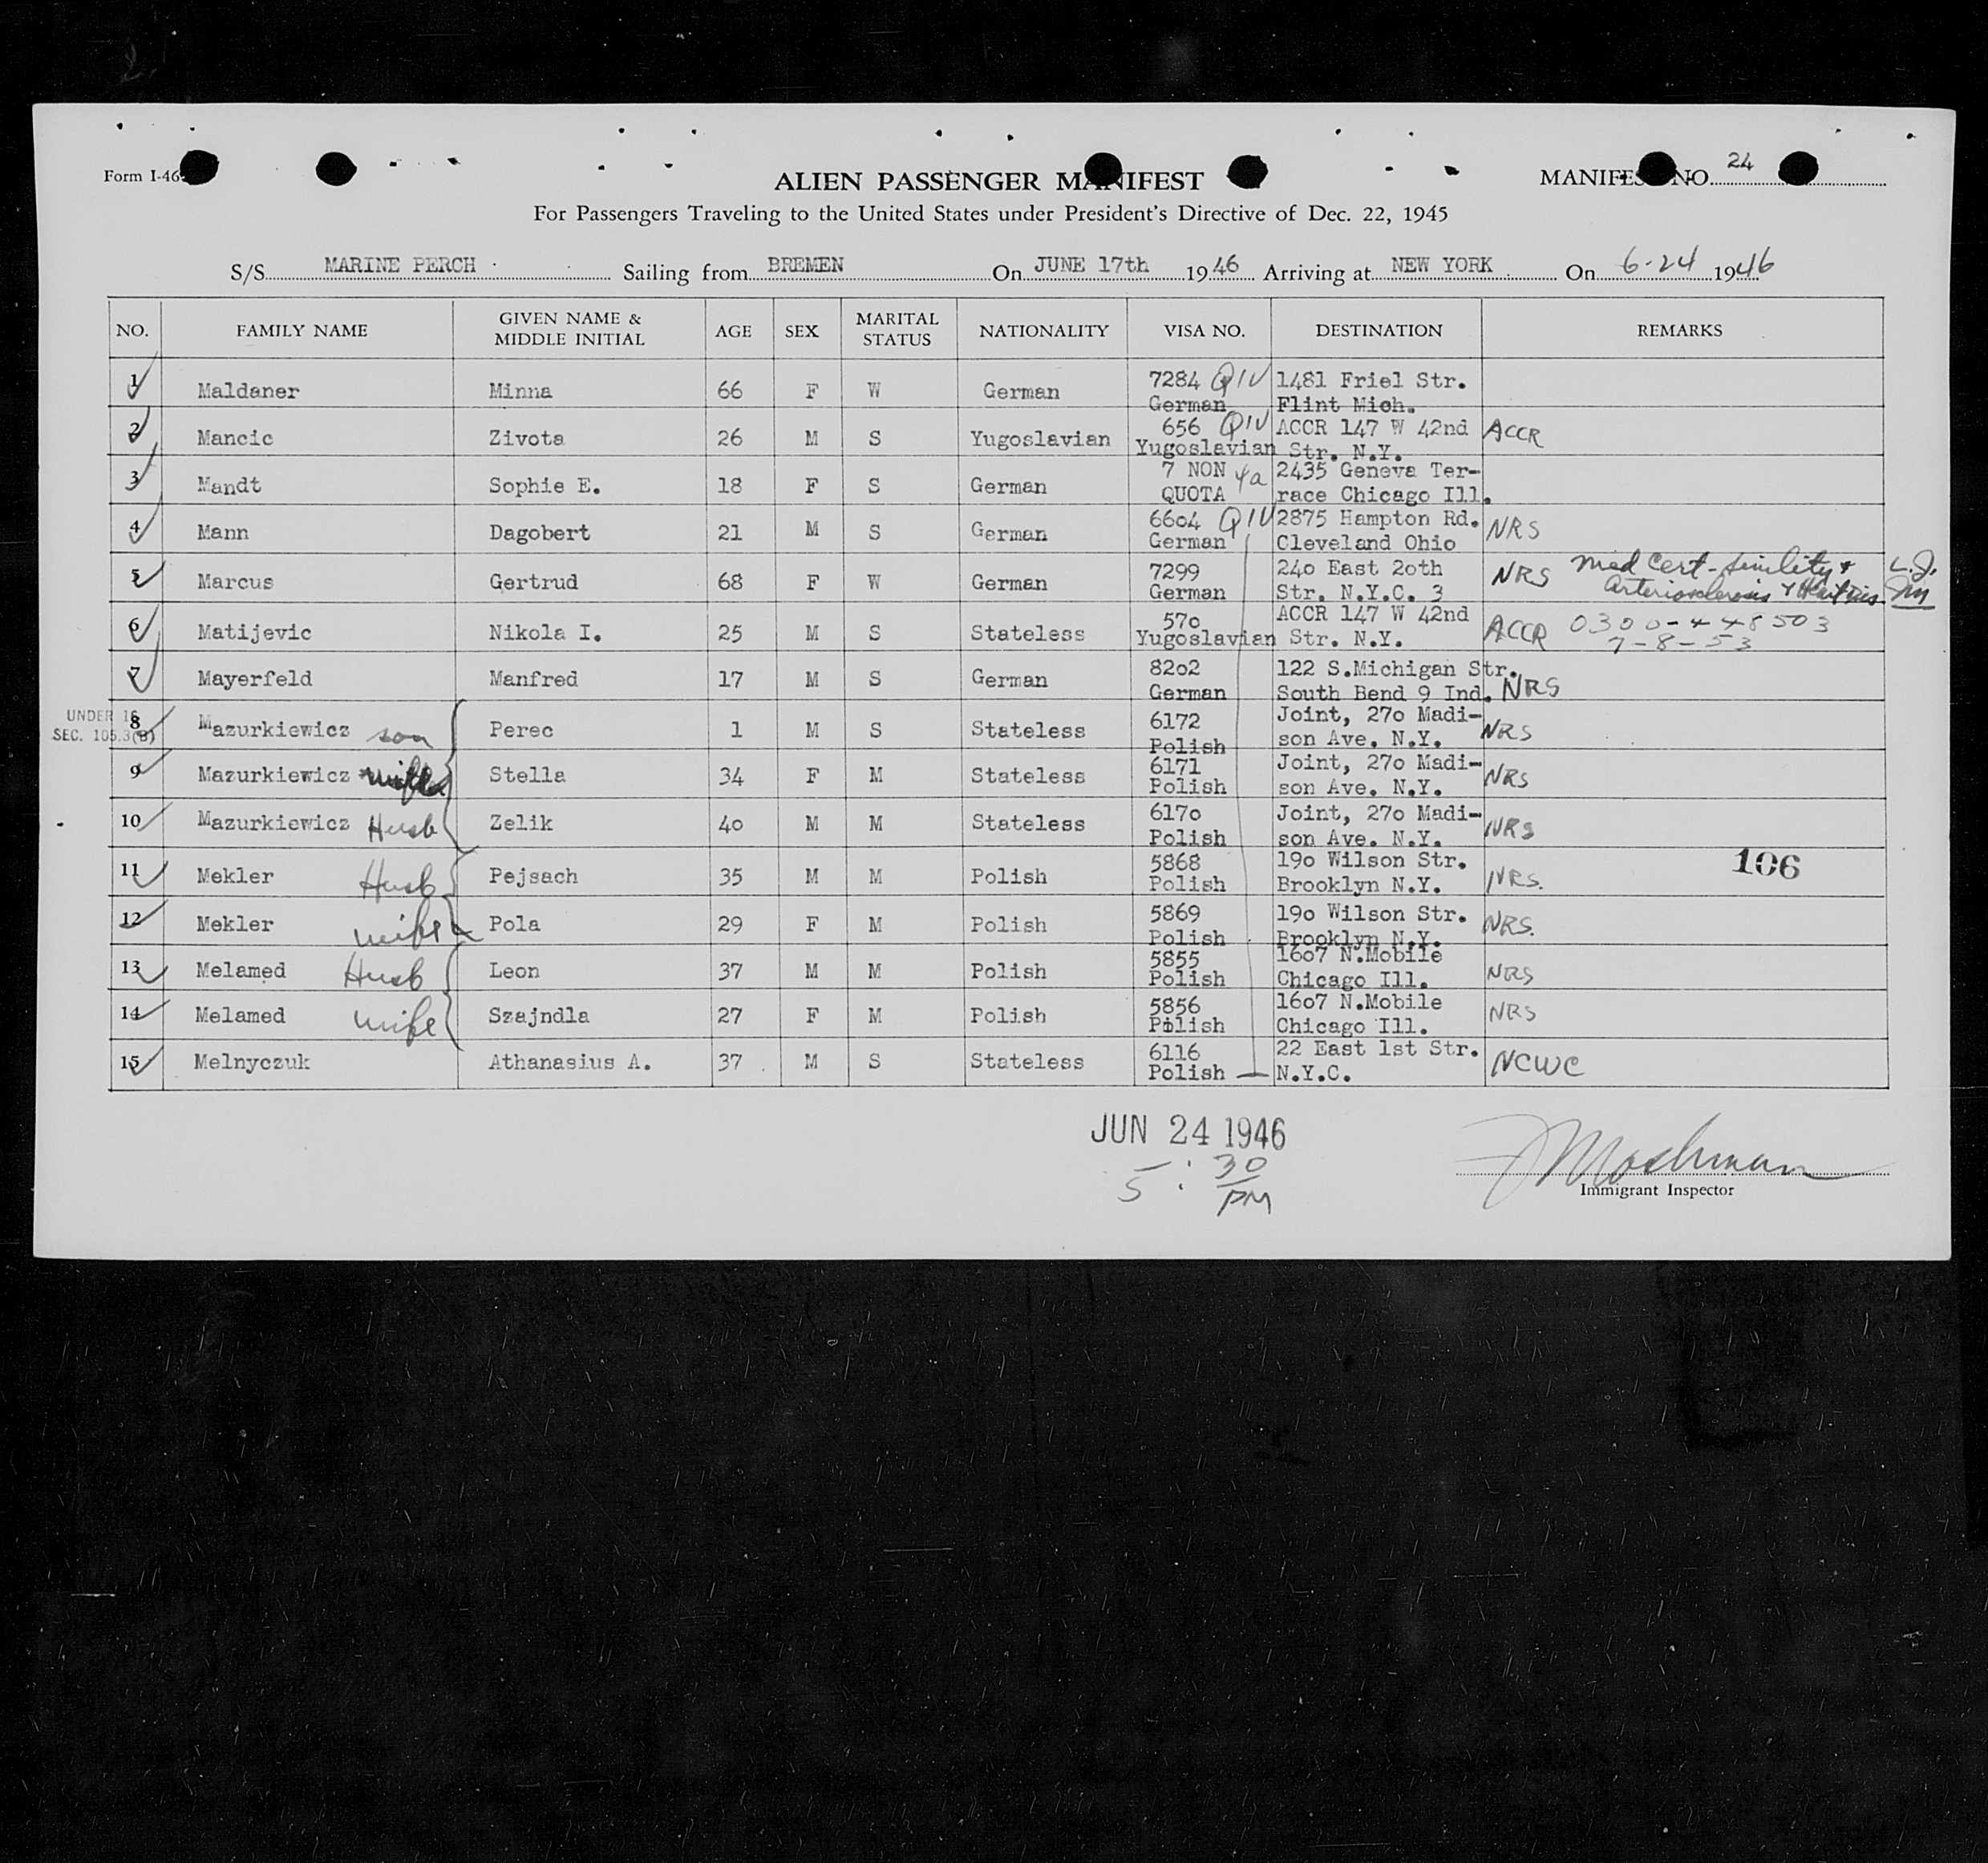 Form I-46
ALIEN PASSENGER MANIFEST
MANIFEST NO. 24
For Passengers Traveling to the United States under President's Directive of Dec. 22, 1945
S/S MARINE PERCH Sailing from BREMEN On JUNE 17th 1946 Arriving at NEW YORK On 6-24 1946
NO. FAMILY NAME GIVEN NAME & MIDDLE INITIAL AGE SEX MARITAL STATUS NATIONALITY VISA NO. DESTINATION REMARKS
1 Maldaner Minna 66 F W German 7284 QIV 1481 Friel Str.
German Flint Mich.
2 Mancic Zivota 26 M S Yugoslavian 656 QIV ACCR 147 W 42nd ACCR
Yugoslavian Str. N.Y.
3 Mandt Sophie E. 18 F S German 7 NON 4a 2435 Geneva Ter-
QUOTA race Chicago Ill.
4 Mann Dagobert 21 M S German 6604 QIV 2875 Hampton Rd. NRS
German Cleveland Ohio
5 Marcus Gertrud 68 F W German 7299 240 East 20th NRS Med Cert - Senility &
German Str. N.Y.C. 3 Arteriosclerosis & Heart Dis.
6 Matijevic Nikola I. 25 M S Stateless 570 ACCR 147 W 42nd ACCR 0300-448503
Yugoslavian Str. N.Y. 7-8-53
7 Mayerfeld Manfred 17 M S German 8202 122 S.Michigan Str.
German South Bend 9 Ind. NRS
UNDER 16
SEC. 105.3(B)
8 Mazurkiewicz son Perec 1 M S Stateless 6172 Joint, 270 Madi- NRS
Polish son Ave. N.Y.
9 Mazurkiewicz wife Stella 34 F M Stateless 6171 Joint, 270 Madi- NRS
Polish son Ave. N.Y.
10 Mazurkiewicz Husb Zelik 40 M M Stateless 6170 Joint, 270 Madi- NRS
Polish son Ave. N.Y.
11 Mekler Husb Pejsach 35 M M Polish 5868 190 Wilson Str. NRS. 106
Polish Brooklyn N.Y.
12 Mekler wife Pola 29 F M Polish 5869 190 Wilson Str. NRS.
Polish Brooklyn N.Y.
13 Melamed Husb Leon 37 M M Polish 5855 1607 N.Mobile NRS
Polish Chicago Ill.
14 Melamed wife Szajndla 27 F M Polish 5856 1607 N.Mobile NRS
Polish Chicago Ill.
15 Melnyczuk Athanasius A. 37 M S Stateless 6116 22 East 1st Str. NCWC
Polish N.Y.C.
JUN 24 1946
5:30 PM
Immigrant Inspector